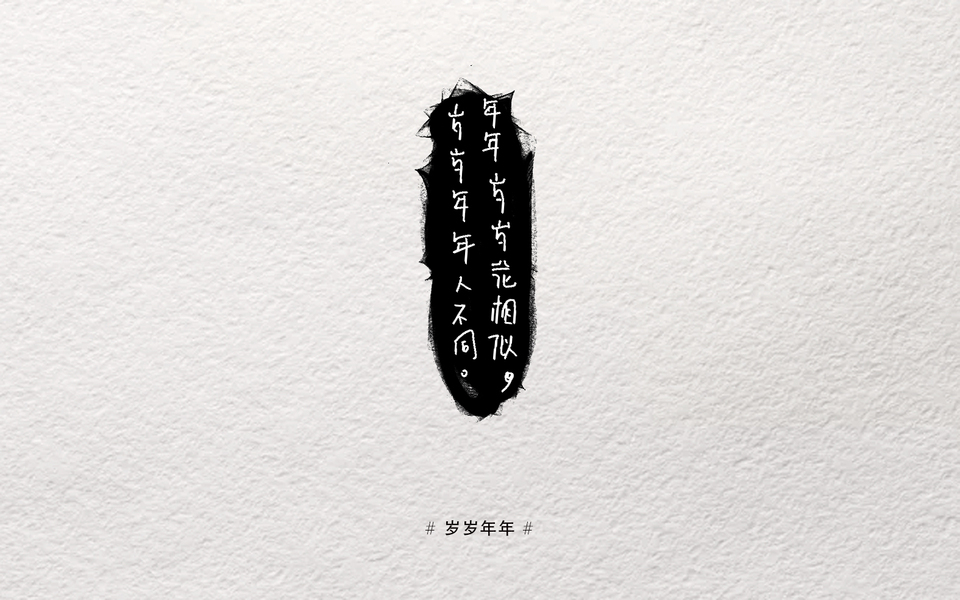 年年岁岁花相似，
岁岁年年人不同。
# 岁岁年年 #